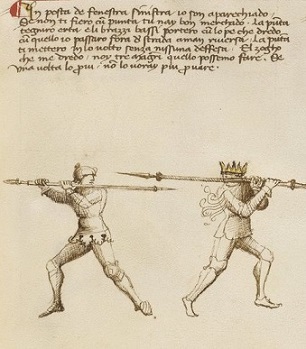 In posta de fenestra sinistra io son aparechiado.
Se non ti fiero cū punta tu nay bon merchado. La punta
tegnirò erta, e li brazzi bassi portero cū lo pe che dredo
cū quello io passaro fora de strada a man riversa. La punta
ti mettero in lo volto senza nissuna deffesa. El zogho
che me dredo noy tre magri quello possemo fare. Se
una volta lo piu no lo voray piu p